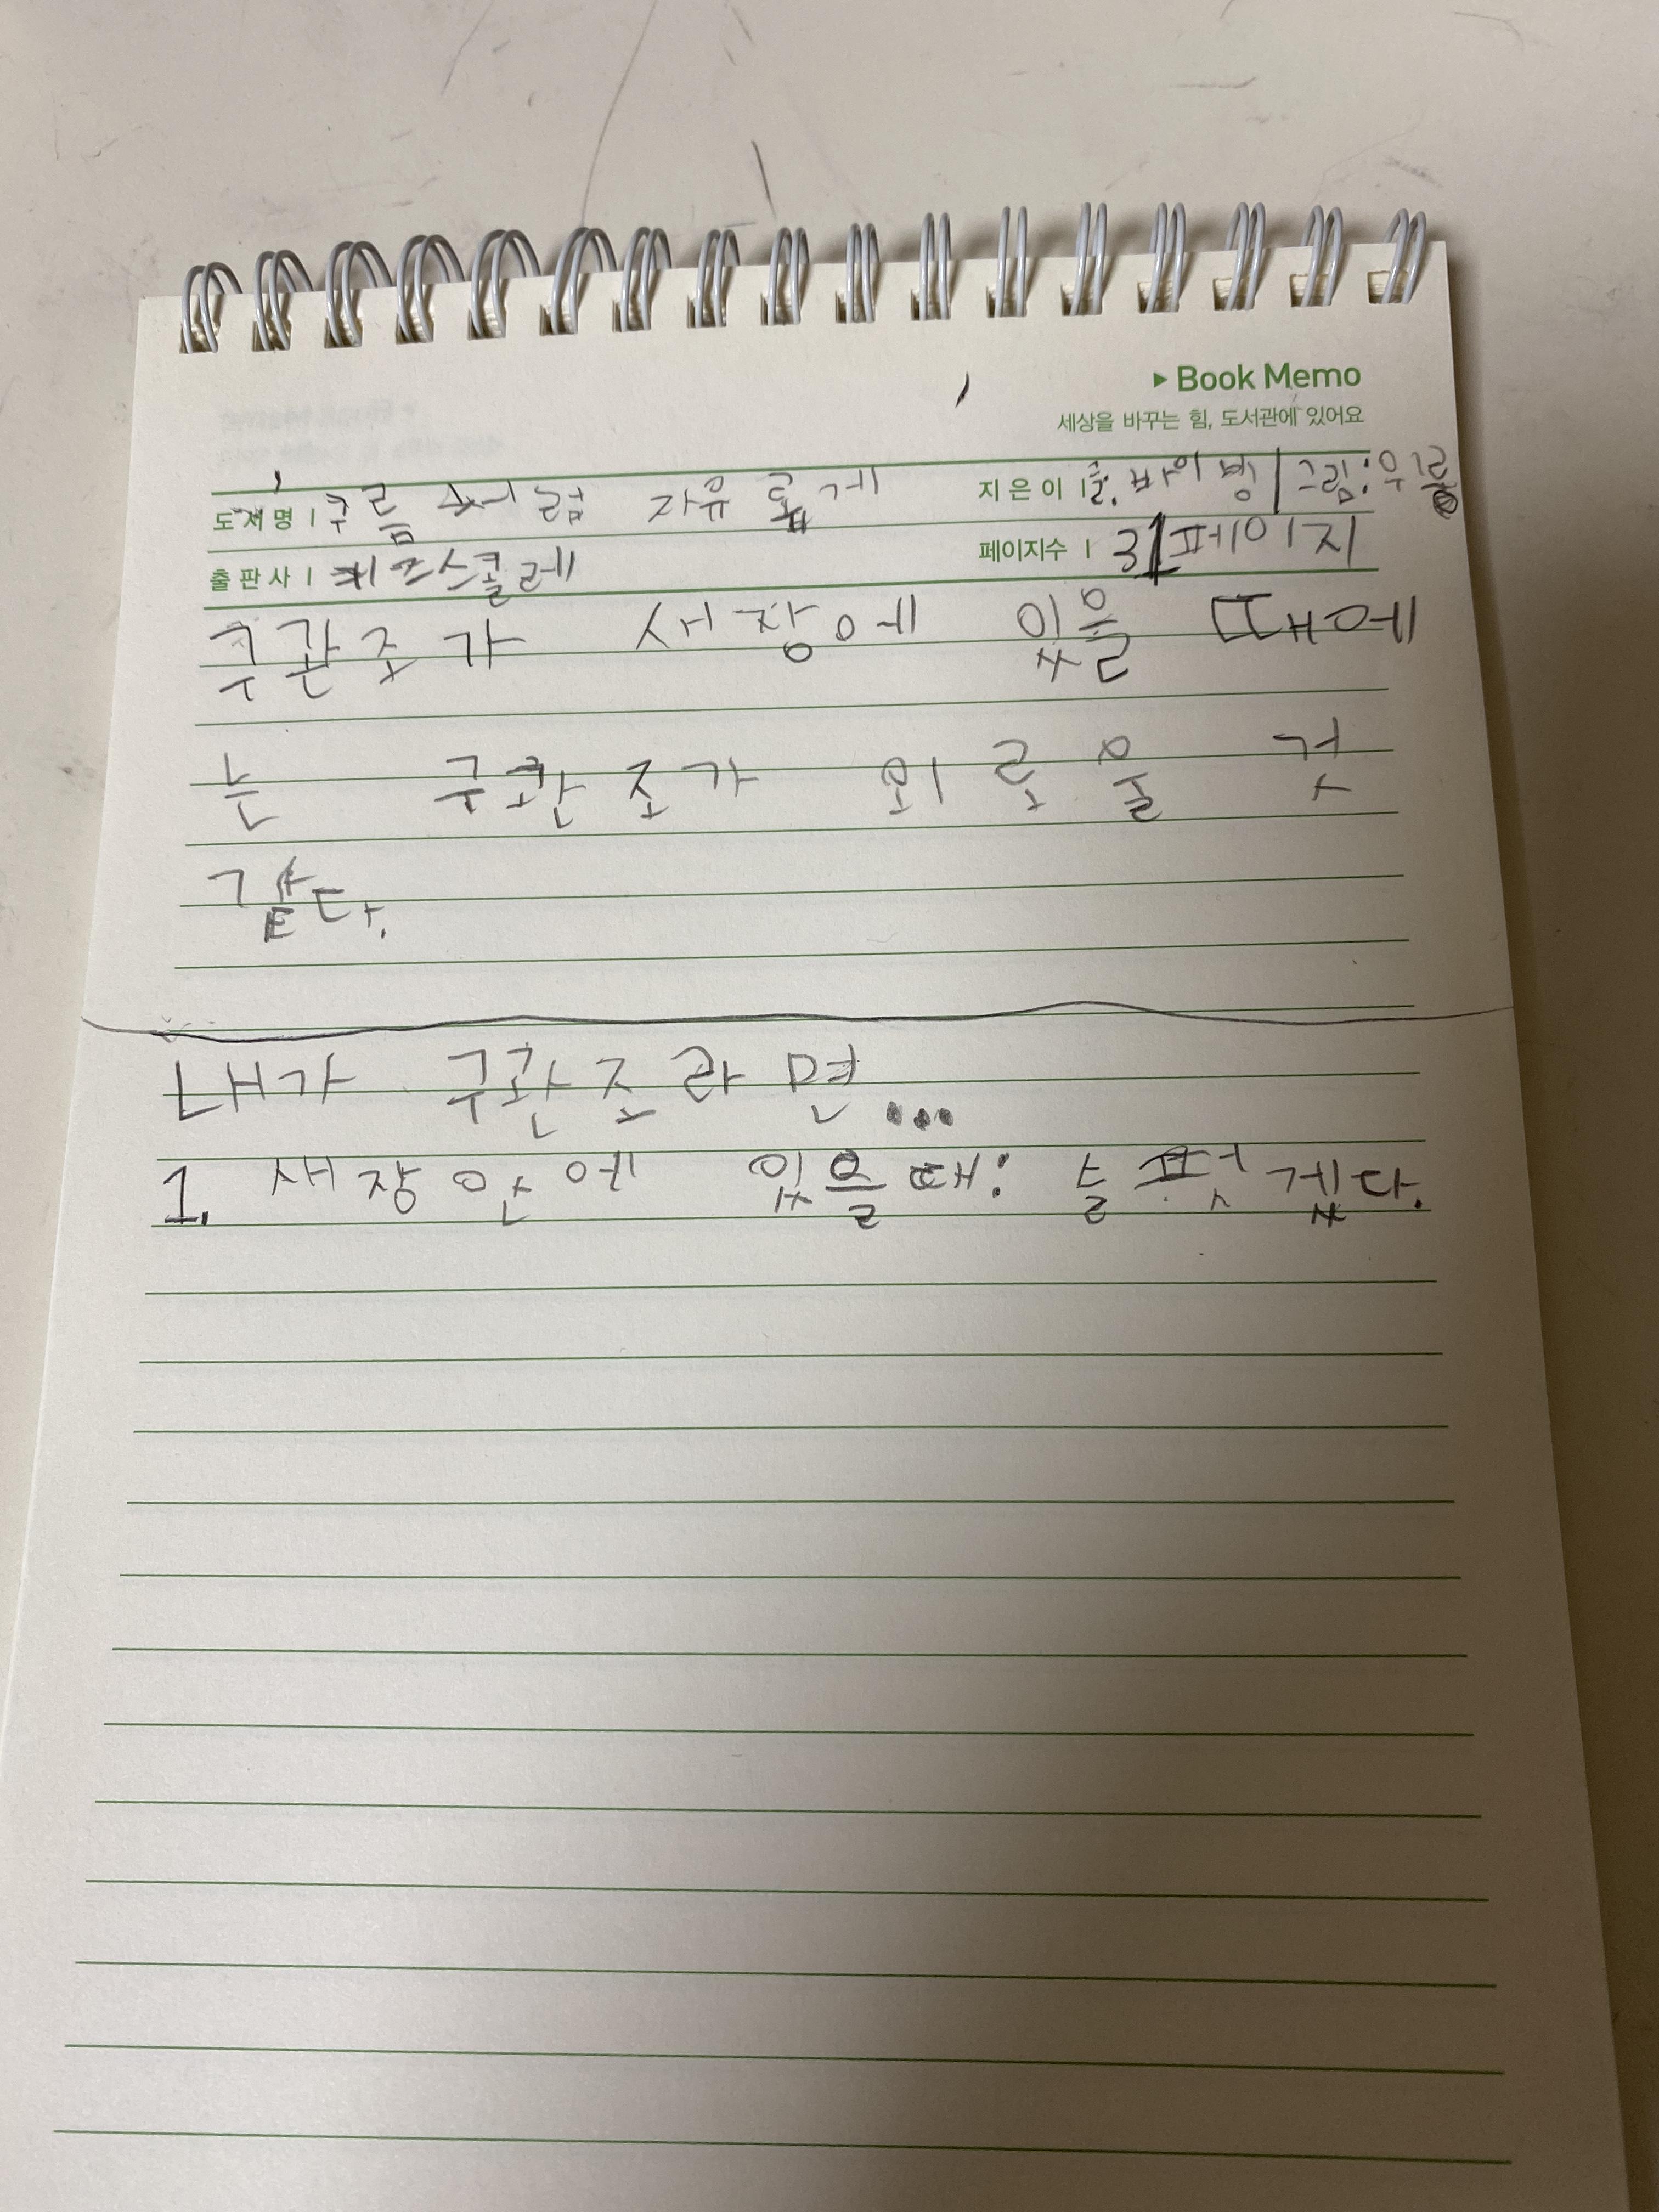 ▸ Book Memo
세상을 바꾸는 힘, 도서관에 있어요
도서명 | 구름 처럼 자유 롭게 지은이 | 글: 바이 빙 / 그림: 우
출판사 | 키즈스콜레 페이지수 | 31페이지
구관조가 새장에 있을 때에
는 구관조가 외로울 것
같다.
내가 구관조라면...
1. 새장 안에 있을때: 슬펏겠다.